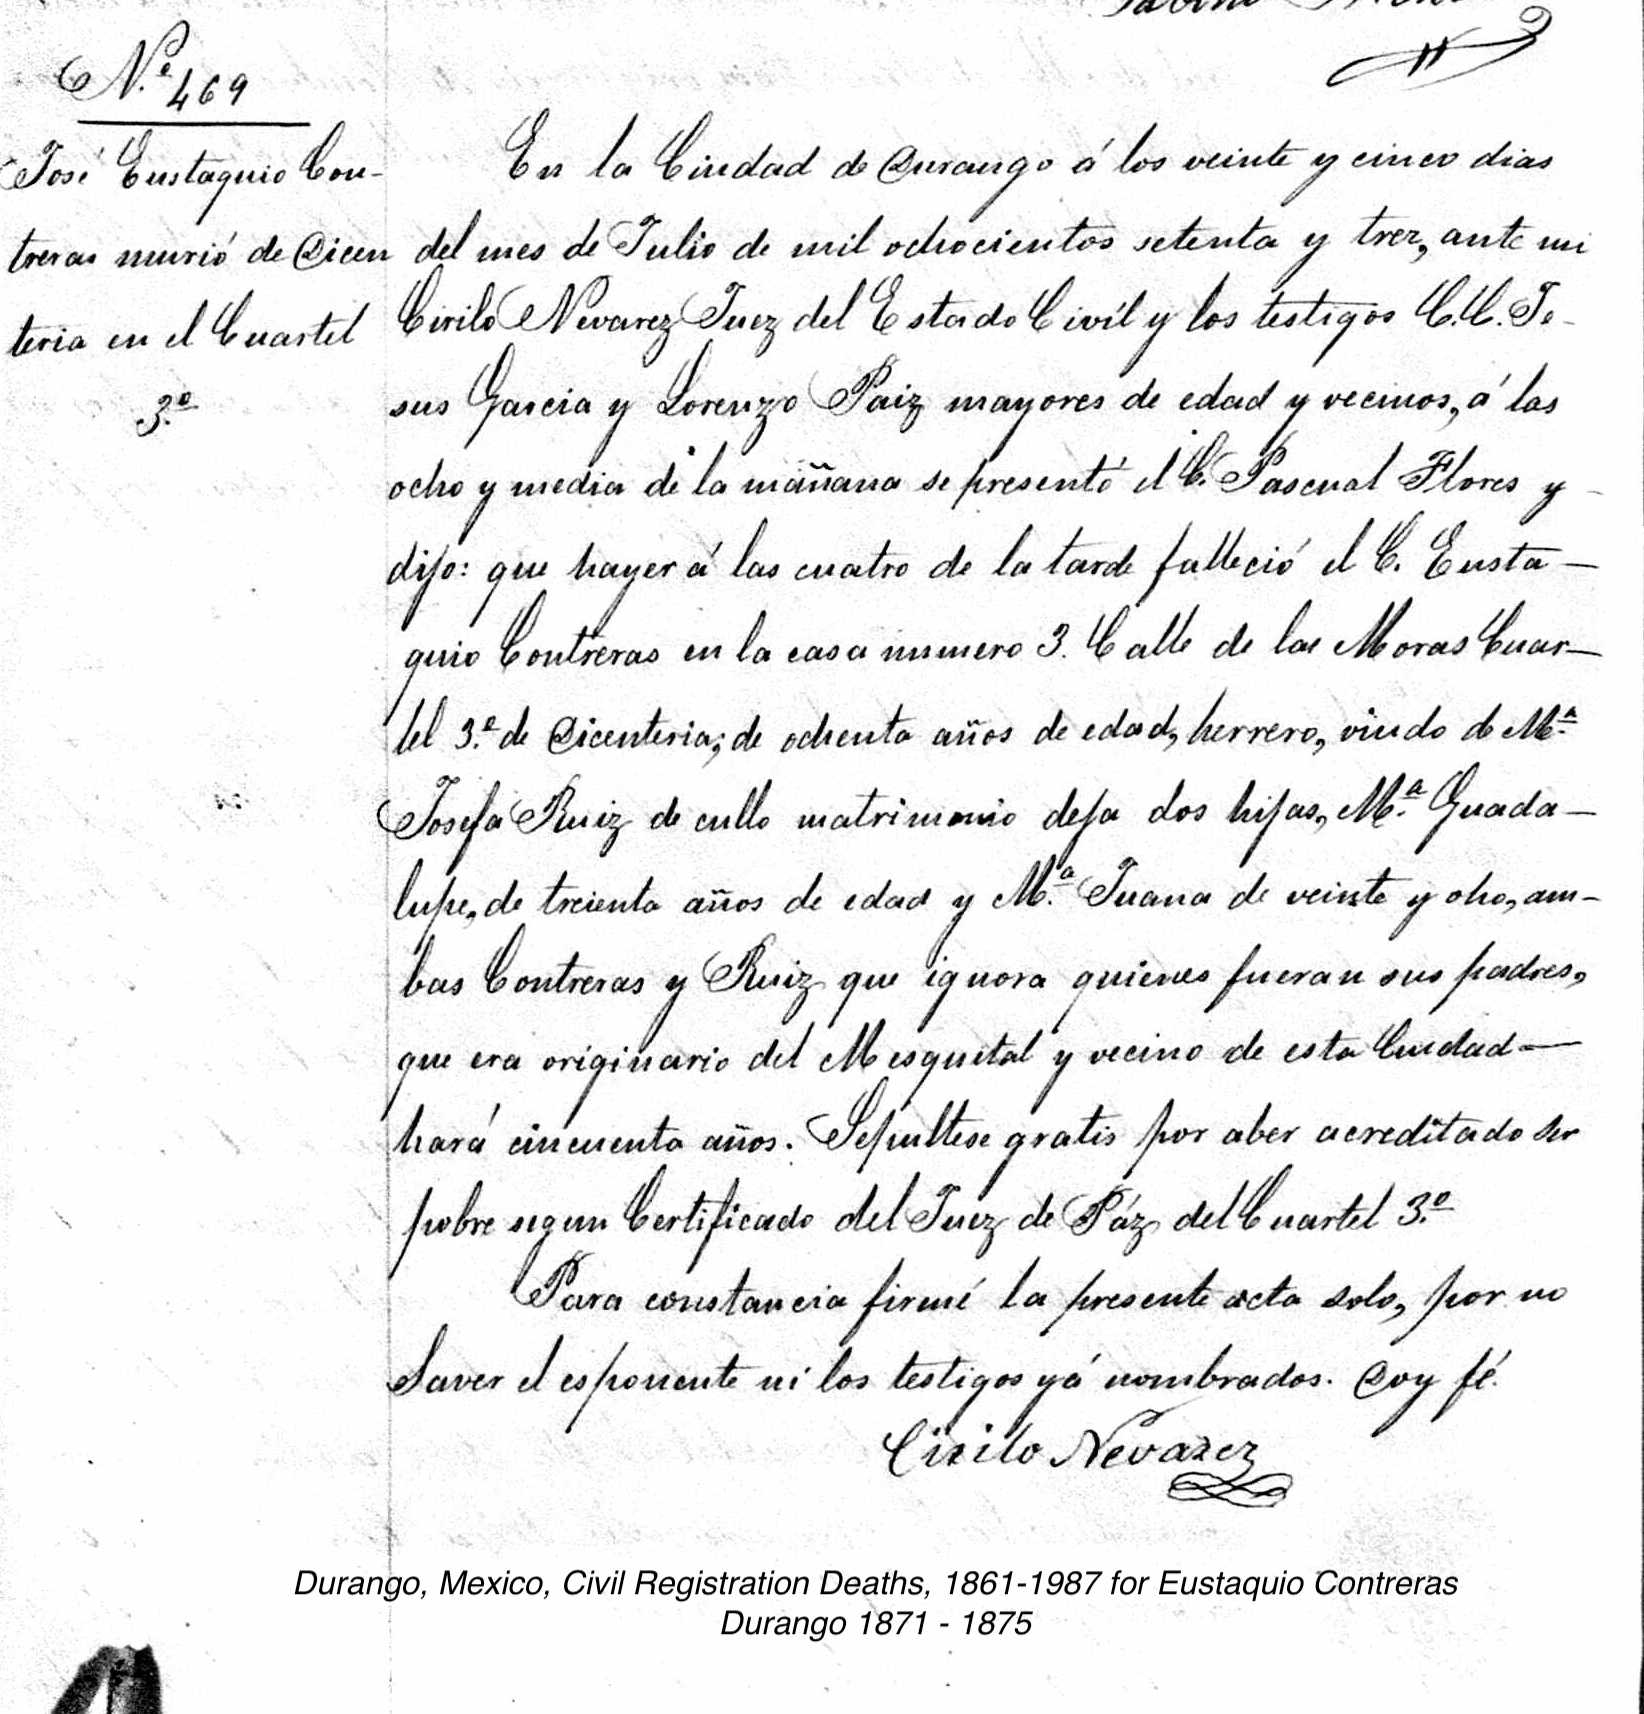 N.º 469
José Eustaquio Con-
treras murió de Dicen
teria en el Cuartel
3.º
En la Ciudad de Durango á los veinte y cinco dias
del mes de Julio de mil ochocientos setenta y trez, ante mi
Cirilo Nevarez Juez del Estado Civil y los testigos C.C. Je-
sus Garcia y Lorenzo Paiz mayores de edad y vecinos, á las
ocho y media de la mañana se presentó el C. Pascual Flores y
dijo: que hayer á las cuatro de la tarde falleció el C. Eusta-
quio Contreras en la casa numero 3. Calle de las Moras Cuar-
tel 3.º de Dicenteria; de ochenta años de edad, herrero, viudo de M.ª
Josefa Ruiz de cullo matrimonio deja dos hijas, M.ª Guada-
lupe, de treienta años de edad y M.ª Juana de veinte y oho, am-
bas Contreras y Ruiz que ignora quienes fueran sus padres,
que era originario del Mesquital y vecino de esta Ciudad—
hará cincuenta años. Sepultese gratis por aber acreditado ser
pobre segun Certificado del Juez de Páz del Cuartel 3.º
Para constancia firmé la presente acta solo, por no
saver el esponente ni los testigos yá nombrados. Doy fé.
Cirilo Nevarez
Durango, Mexico, Civil Registration Deaths, 1861-1987 for Eustaquio Contreras
Durango 1871 - 1875